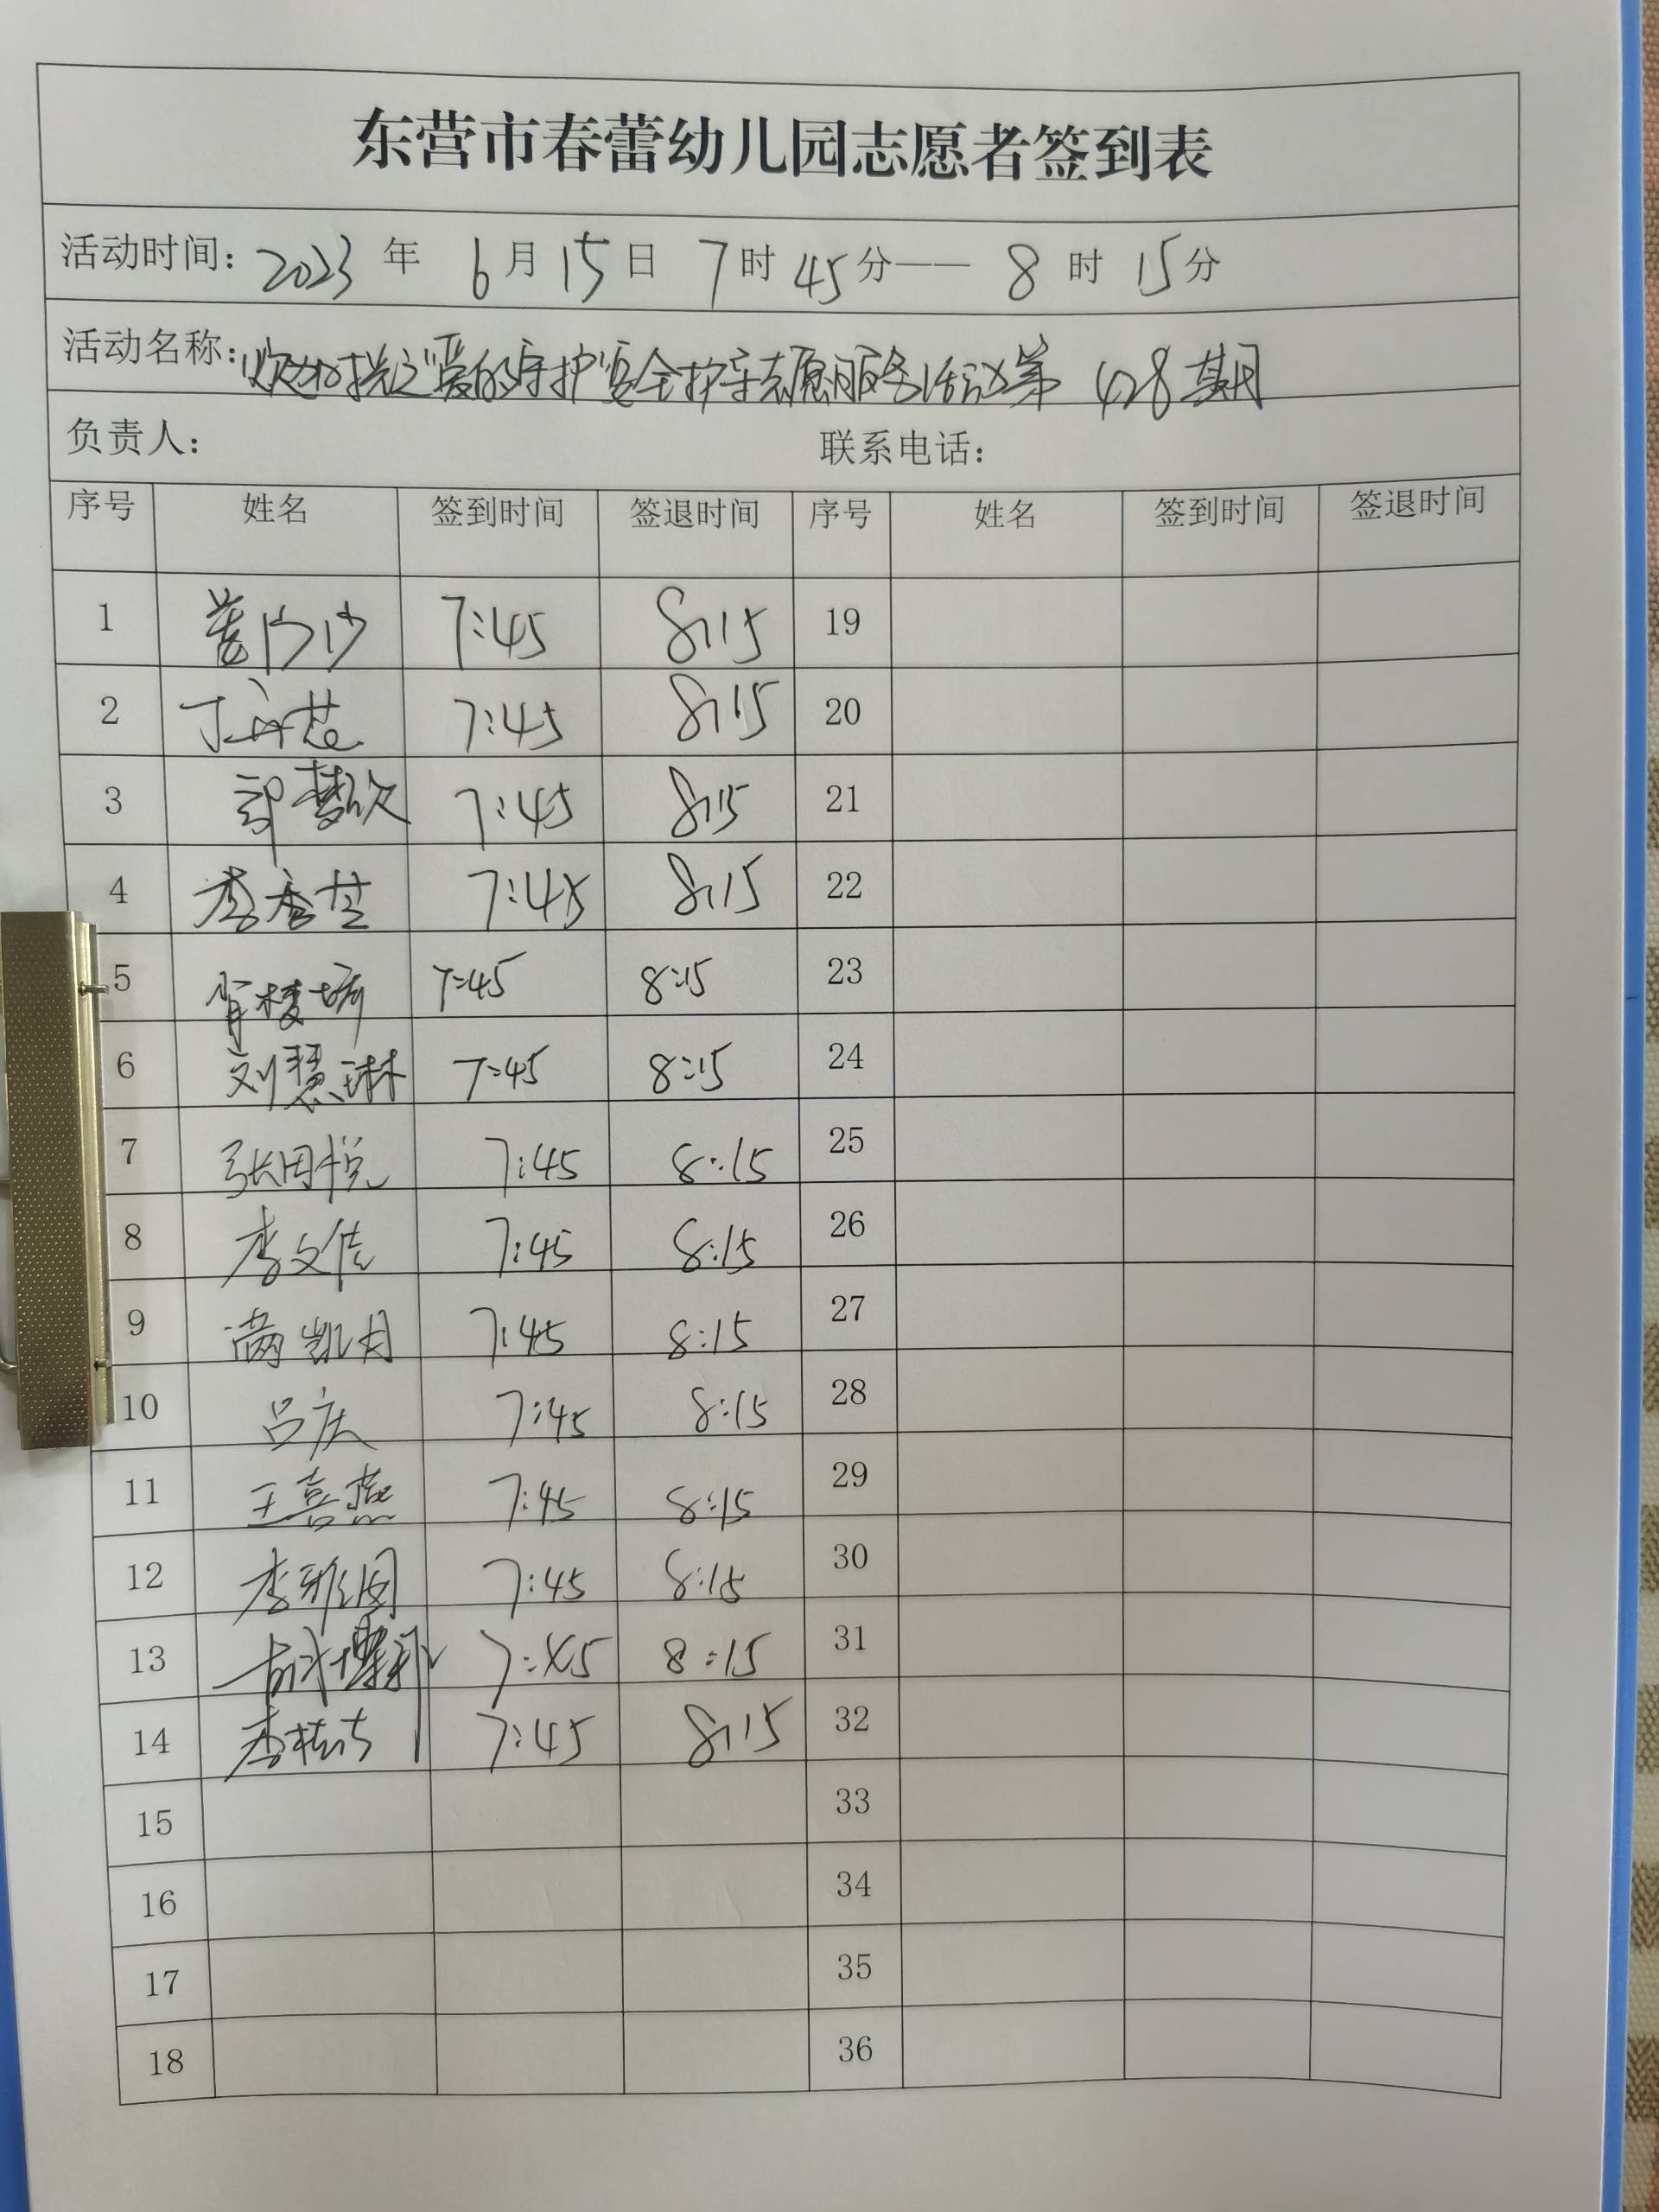 东营市春蕾幼儿园志愿者签到表
活动时间: 2023 年 6 月 15 日 7 时 45 分—— 8 时 15 分
活动名称: 之"爱的守护"安全护导志愿服务活动第 428 期
负责人: 联系电话:
序号 姓名 签到时间 签退时间 序号 姓名 签到时间 签退时间
1 7:45 8:15 19
2 7:45 8:15 20
3 郭梦欣 7:45 8:15 21
4 李秀芝 7:45 8:15 22
5 7:45 8:15 23
6 刘慧琳 7:45 8:15 24
7 7:45 8:15 25
8 李文佳 7:45 8:15 26
9 满凯月 7:45 8:15 27
10 吕庆 7:45 8:15 28
11 王喜燕 7:45 8:15 29
12 7:45 8:15 30
13 7:45 8:15 31
14 7:45 8:15 32
15 33
16 34
17 35
18 36